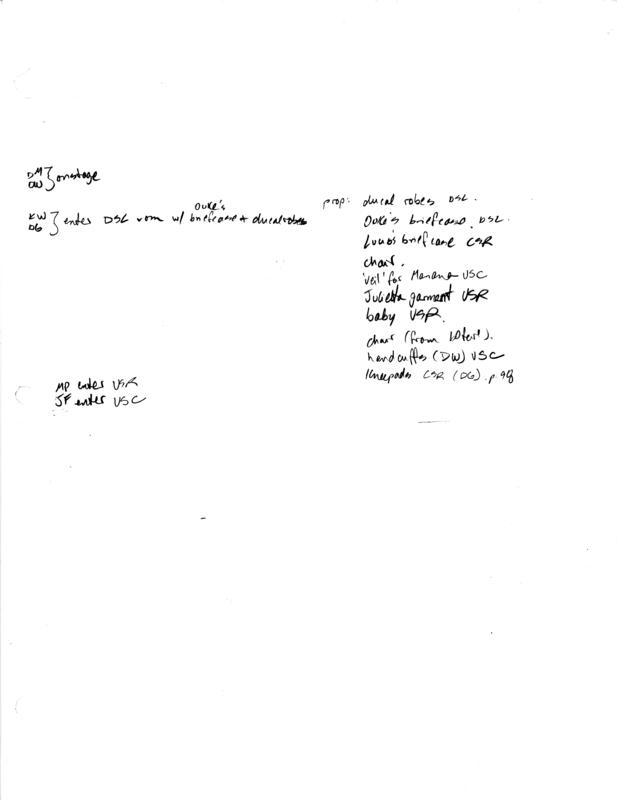 DM } onstage
DW
Duke's
KW } enters DSL vom w/ briefcase + ducal robes
DG
MP enters USR
JF enter USC
prop: ducal robes DSL.
Duke's briefcase DSL.
Lucio's briefcase CSR
chair.
'veil' for Mariana USC
Julietta garment USR
baby USR.
chair (from
handcuffs (DW) USC
Kneepads CSR (DG). p. 98